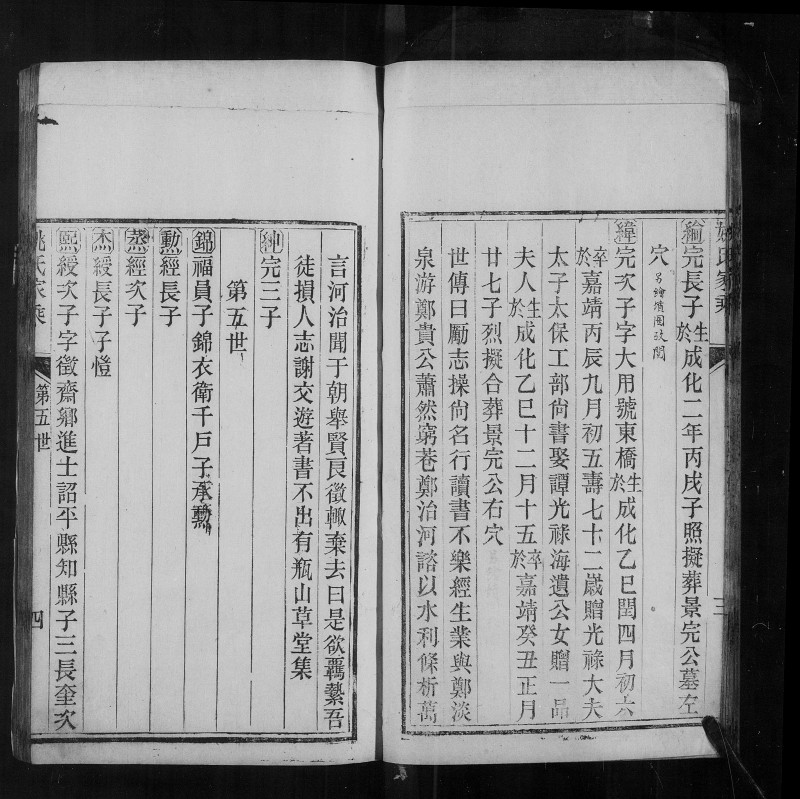 姚氏家乘
三
綸完長子生於成化二年丙戌子照擬葬景完公墓左
穴另繪墳圖攷閱
緯完次子字大用號東橋生於成化乙巳閏四月初六
卒於嘉靖丙辰九月初五壽七十二歲贈光祿大夫
太子太保工部尙書娶譚光祿海遺公女贈一品
夫人生於成化乙巳十二月十五卒於嘉靖癸丑正月
廿七子烈擬合葬景完公右穴
世傳曰勵志操尙名行讀書不樂經生業與鄭淡
泉游鄭貴公蕭然窮巷鄭治河諮以水利條析萬
言河治聞于朝舉賢良徵輙棄去曰是欲羈縶吾
徒損人志謝交遊著書不出有瓶山草堂集
紳完三子
第五世
錦福員子錦衣衛千戶子承勳
勲經長子
烝經次子
杰綬長子子愷
熙綬次子字徵齋鄉進士詔平縣知縣子三長奎次
姚氏家乘
第五世
四